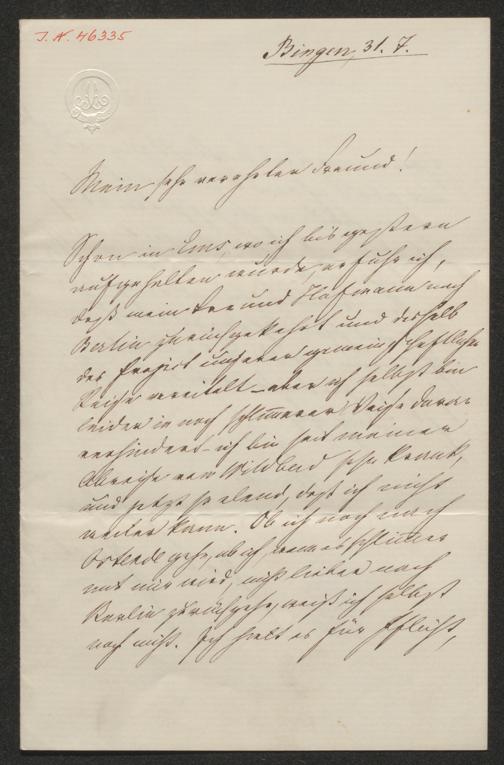 J. N. 46335
Bingen, 31. 7.
Mein sehr verehrter Freund!
Schon in Ems, wo ich bis gestern
aufgehalten wurde, erfuhr ich,
daß mein Freund Hofmann nach
Berlin zurückgekehrt und deshalb
das Projekt unserer gemeinschaftlichen
Reise vereitelt – aber ich selbst bin
leider in noch schlimmerer Weise daran
verhindert – ich bin seit meiner
Abreise von Wildbad sehr krank,
und jetzt so elend, daß ich nicht
weiter kann. Ob ich noch nach
gehe, ob ich, wenn es schlimmer
mit mir wird, nicht lieber nach
Berlin zurückgehe, weiß ich selbst
noch nicht. Ich hielt es für Pflicht,